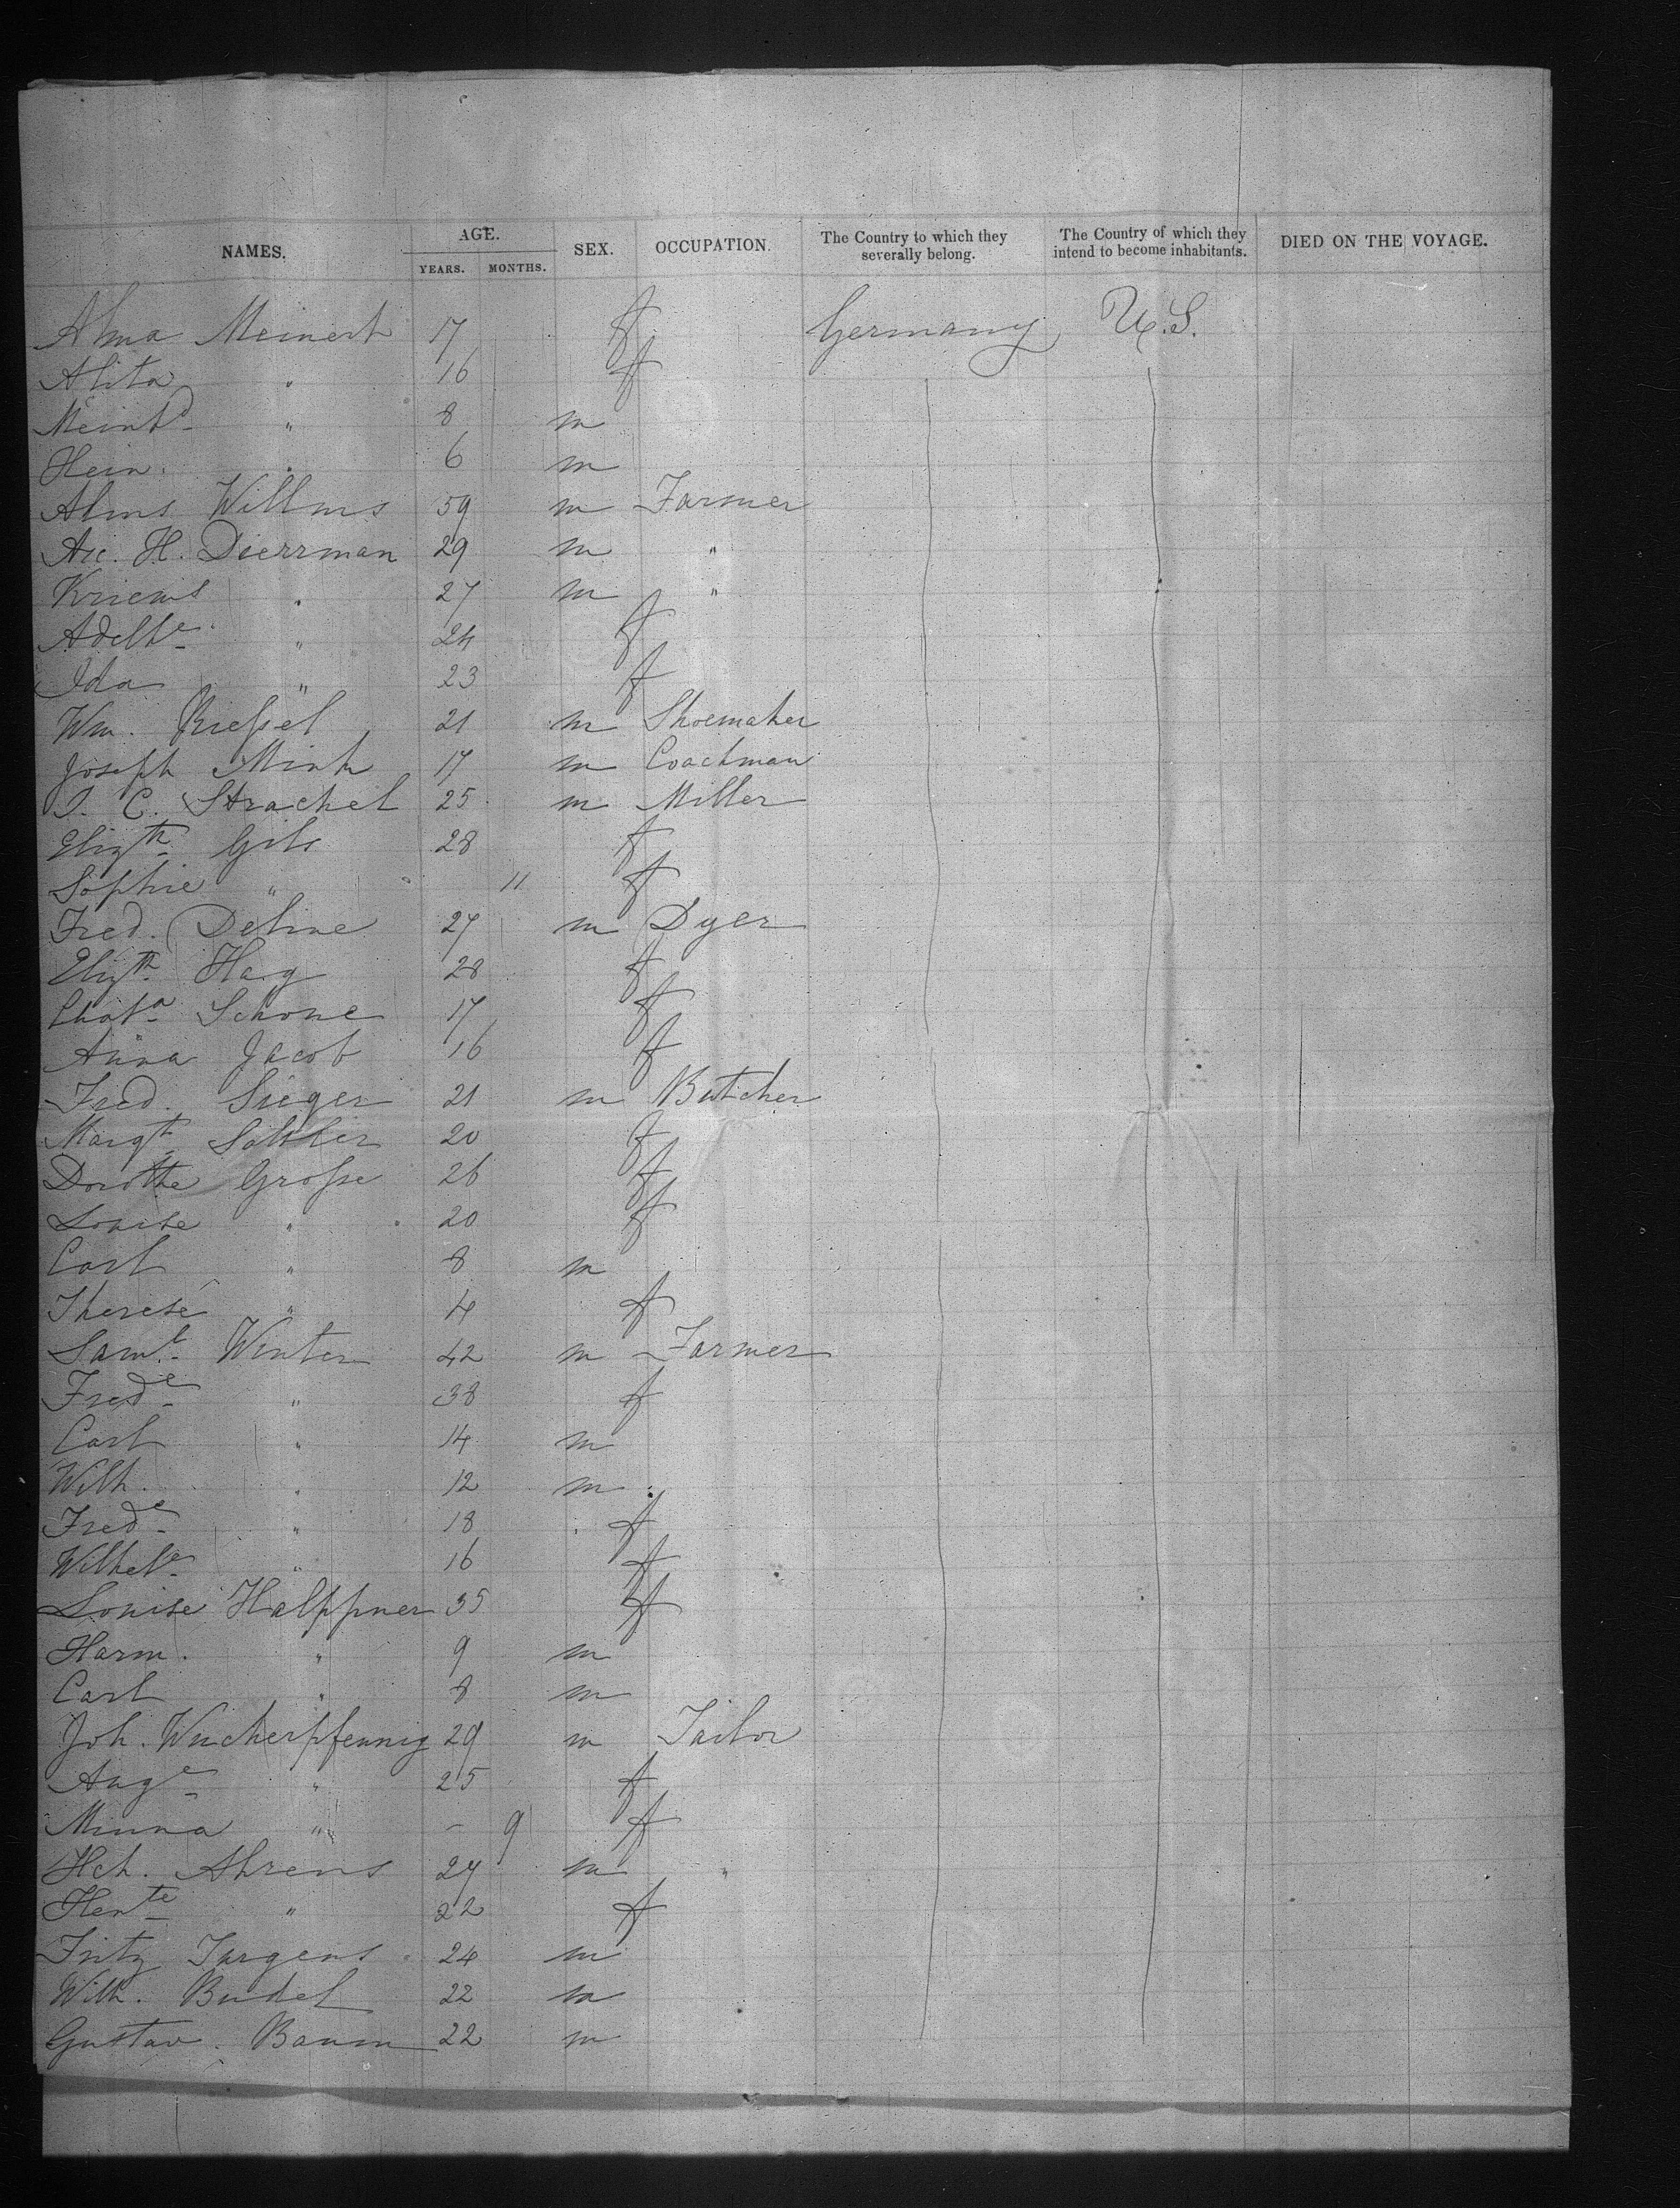 NAMES. AGE. YEARS. MONTHS. SEX. OCCUPATION. The Country to which they severally belong. The Country of which they intend to become inhabitants. DIED ON THE VOYAGE.
Alma Meinert 17 f Germany U.S.
Alita " 16 f
Meinhd " 8 m
Hein. " 6 m
Ahms Willms 59 m Farmer
H. Dierrman 29 m "
Kriems " 27 m "
Adelhe " 24 f
Ida " 23 f
Wm. Rießel 21 m Shoemaker
Joseph Mink 17 m Coachman
C. Strachel 25 m Miller
Elizth Gils 28 f
Sophie " 11 f
Fred. Dehne 27 m Dyer
Elizth Hag 28 f
Schone 17 f
Anna Jacob 16 f
Fred. Sieger 21 m Butcher
Margt 20 f
Dorothe Große 26 f
Louise " 20 f
Carl " 8 m
Therese " 4 f
Saml Winter 42 m Farmer
Frede " 38 f
Carl " 14 m
Wilh. " 12 m
Frede " 18 f
Wilhele " 16 f
Louise Halppner 35 f
Harm. " 9 m
Carl " 8 m
Joh. Wucherpfennig 29 m Tailor
Auge " 25 f
Minna " - 9 f
Hch. Ahrens 27 m "
Hente " 22 f
Fritz Jurgens 24 m
Wilh. Budel 22 m
Gustav. Baum 22 m